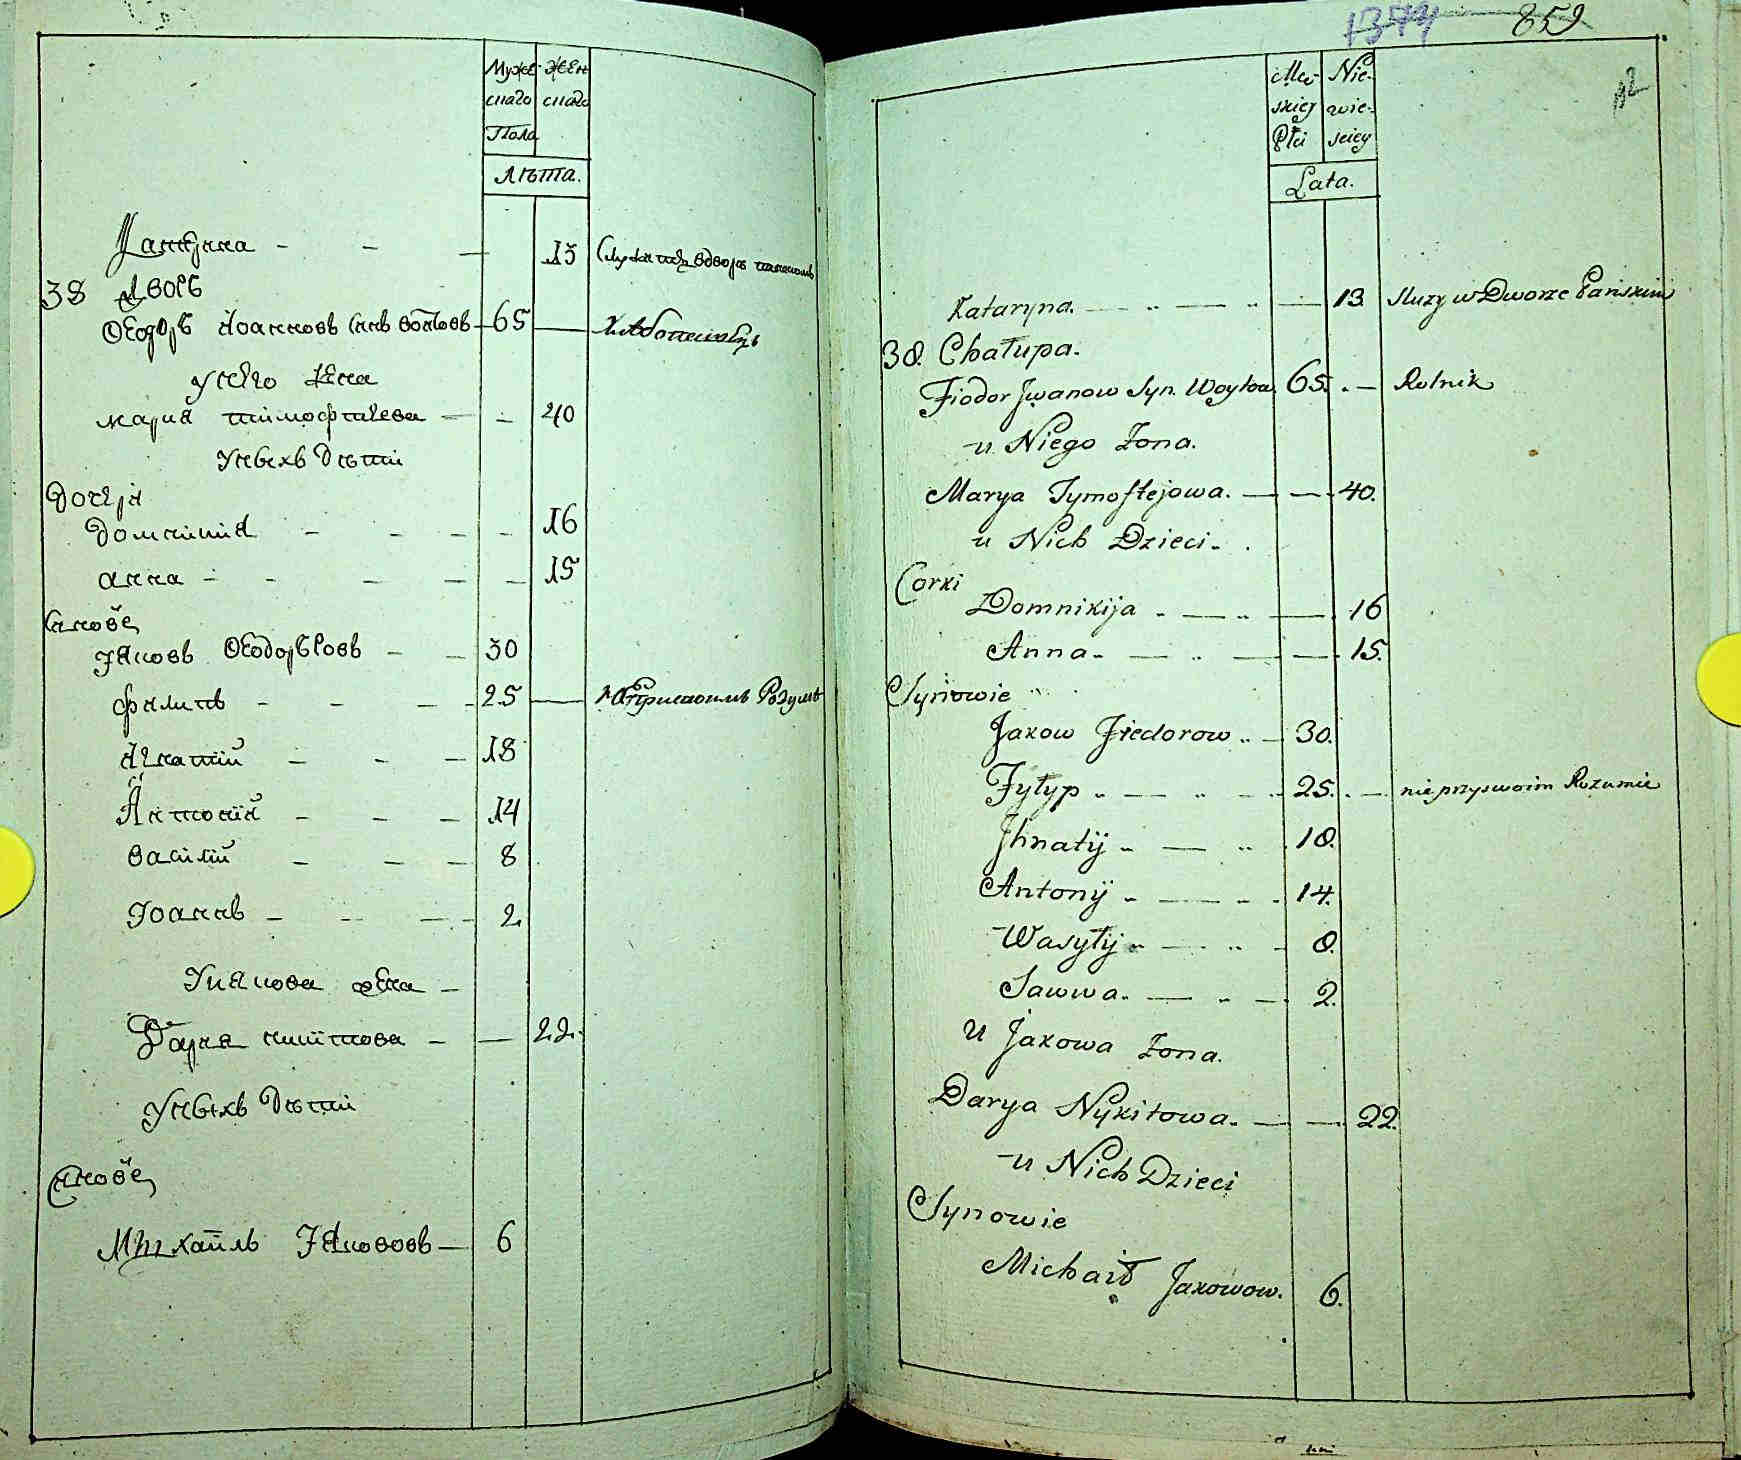 Муже
Жен
скаго
скаго
Пола
Лѣта.
13
38 Дворъ
Ѳеодоръ Іоанновъ Снъ Войтовъ 65 Хлѣбопашецъ
У него жена
Мария Тимофтиева 40
У нихъ дѣти
Дочери
Домникия 16
Анна 15
Снове
Іяковъ Ѳеодоровъ 30
Филипъ 25
Игнатий 18
Антоній 14
Василій 8
Іоаннъ 2
У Иякова жена
Дария Никитова 22.
У нихъ дѣти
Снове
Михаилъ Іякововъ 6
1374 859
12
Mę-
Nie-
skiej
wie-
Płci
sciey
Lata.
Kataryna. 13 służy w Dworze Pańskim
38. Chałupa.
Fiodor Jwanow Syn. Woytow. 65. Rolnik
u Niego Żona.
Marya Tymoftejowa. 40.
u Nich Dzieci.
Corki
Domnikija 16
Anna. 15.
Synowie
Jakow Fiedorow 30.
Fyłyp 25. nie przy swoim Rozumie
Jhnatij 18.
Antonij 14.
Wasyłij 8.
Sawwa. 2.
u Jakowa Żona.
Darya Nykitowa. 22.
u Nich Dzieci
Synowie
Michaił Jakowow. 6.